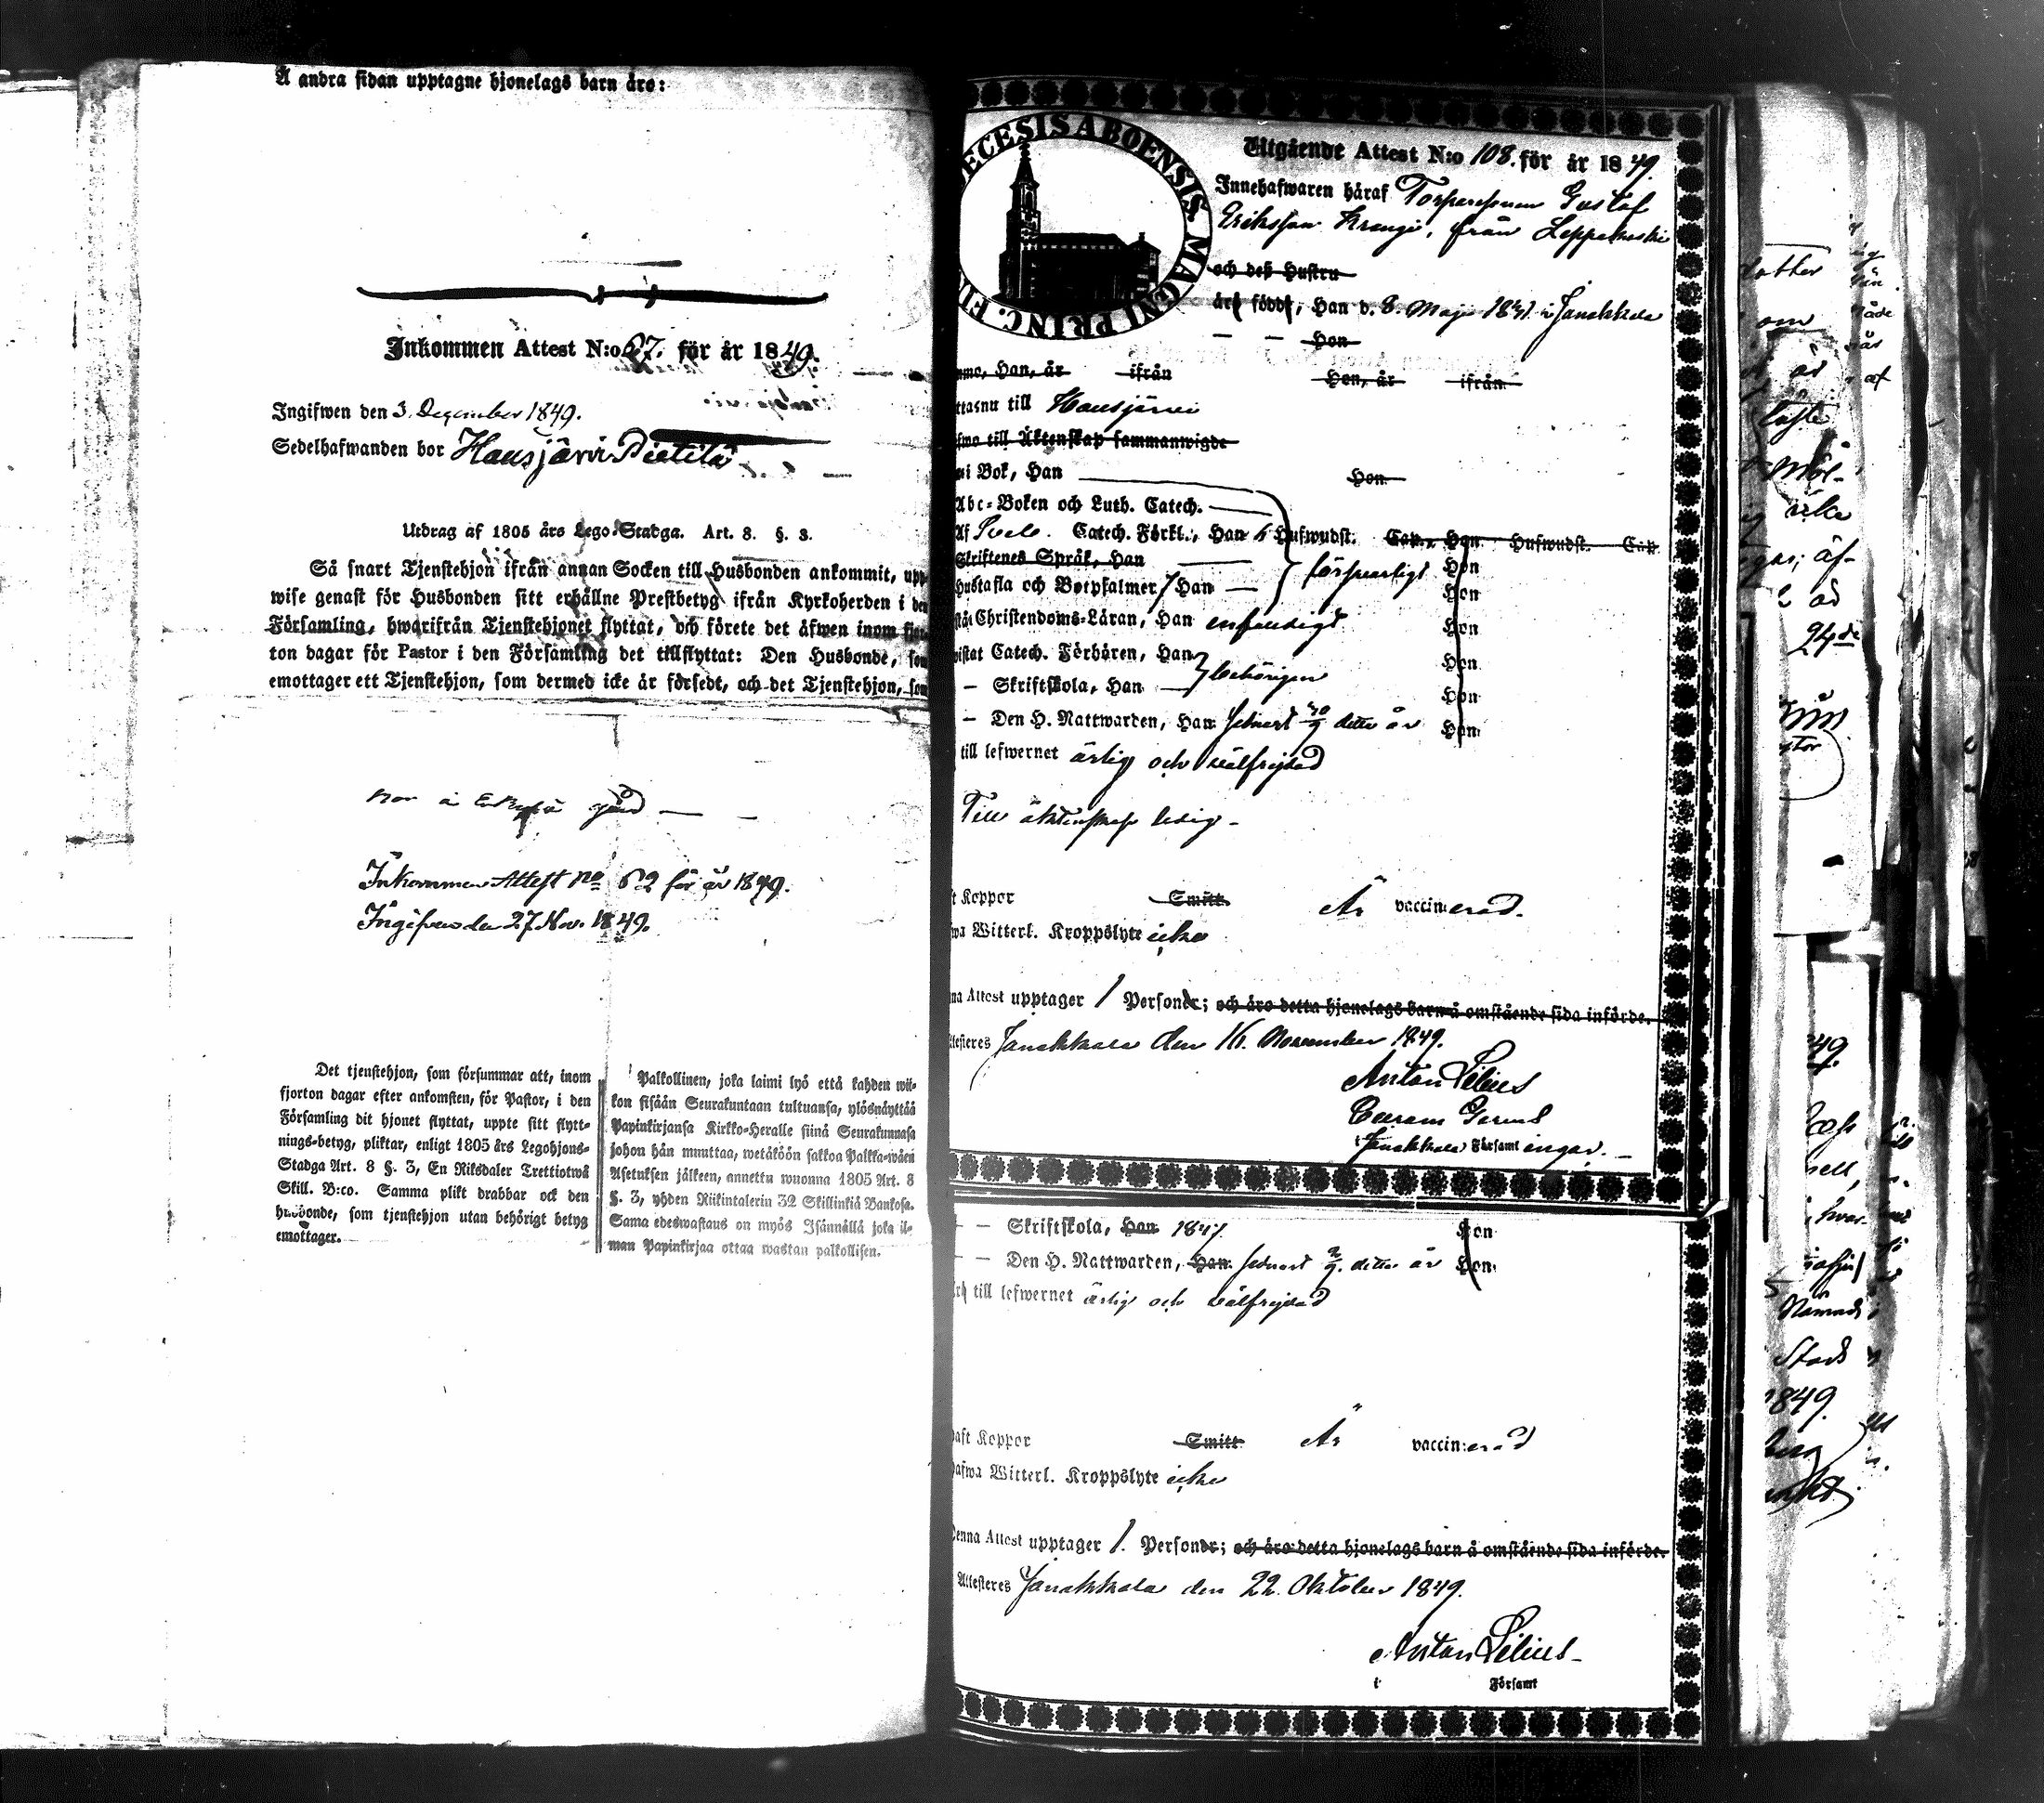 Å andra sidan upptagne hjonelags barn äro:
Inkommen Attest N:o 67. för år 1849.
Ingifwen den 3. December 1849.
Sedelhafwanden bor Hausjärvi Pietilä
Utdrag af 1805 års Lego-Stadga. Art. 8. §. 3.
Så snart Tjenstehjon ifrån annan Socken till Husbonden ankommit, upp-
wise genast för Husbonden sitt erhållne Prestbetyg ifrån Kyrkoherden i den
Församling, hwarifrån Tjenstehjonet flyttat, och förete det äfwen inom fjor-
ton dagar för Pastor i den Församling det tillflyttat: Den Husbonde, som
emottager ett Tjenstehjon, som dermed icke är försedt, och det Tjenstehjon, som
gård
Inkommen Attest No 62 för år 1849.
Ingifven den 27 Nov. 1849.
Det tjenstehjon, som försummar att, inom
fjorton dagar efter ankomsten, för Pastor, i den
Församling dit hjonet flyttat, uppte sitt flytt-
nings-betyg, pliktar, enligt 1805 års Legohjons-
Stadga Art. 8 §. 3, En Riksdaler Trettiotwå
Skill. B:co. Samma plikt drabbar ock den
husbonde, som tjenstehjon utan behörigt betyg
emottager.
Palkollinen, joka laimi lyö että kahden wii-
kon sisään Seurakuntaan tultuansa, ylösnäyttää
Papinkirjansa Kirkko-Heralle siinä Seurakunnasa
johon hän muuttaa, wetäköön sakkoa Palkka-wäen
Asetuksen jälkeen, annettu wuonna 1805 Art. 8
§. 3, yhden Riikintalerin 32 Skillinkiä Bankosa.
Sama edeswastaus on myös Isännällä joka il-
man Papinkirjaa ottaa wastan palkollisen.
ECESIS ABOENSIS. MAGNI PRINC. FI
Utgående Attest N:o 108. för år 1849.
Innehafwaren häraf Torparesonen Gustaf
Eriksson Krangi, från Leppäkoski
och deß Hustru
är född, Han d. 8. Maji 1831. i Janakkala
— — Hon
Han, år ifrån Hon, år ifrån
till Hausjärvi
till Äktenskap sammanwigde
i Bok, Han Hon
Abc-Boken och Luth. Catech.
Af Sveb. Catech. Förkl., Han 6 Hufwudst. Hon Hufwudst.
Skriftenes Språk, Han Hon
Hustafla och Botpsalmer, Han försvarligt Hon
Christendoms-Läran, Han enfaldigt Hon
Catech. Förhören, Han Hon
— Skriftskola, Han behörigen Hon
— Den H. Nattwarden, Han senast 30/9 detta år Hon
till lefwernet ärlig och välfrejdad
Till äktenskap ledig –
Koppor Smitt Är vaccinerad.
Witterl. Kroppslyte icke
Attest upptager 1 Personer; och äro detta hjonelags barn å omstående sida införde.
Janakkala den 16. November 1849.
Anton Lilius
i Janakkala Församlingar. –
— — Skriftskola, Han 1847. Hon
— Den H. Nattwarden, Han senast 2/9. detta år Hon
till lefwernet ärlig och välfrejdad
Koppor Smitt Är vaccinerad
Witterl. Kroppslyte icke
Denna Attest upptager 1. Personer; och äro detta hjonelags barn å omstående sida införde.
Attesteres Janakkala den 22. Oktober 1849.
Anton Lilius
i Församl